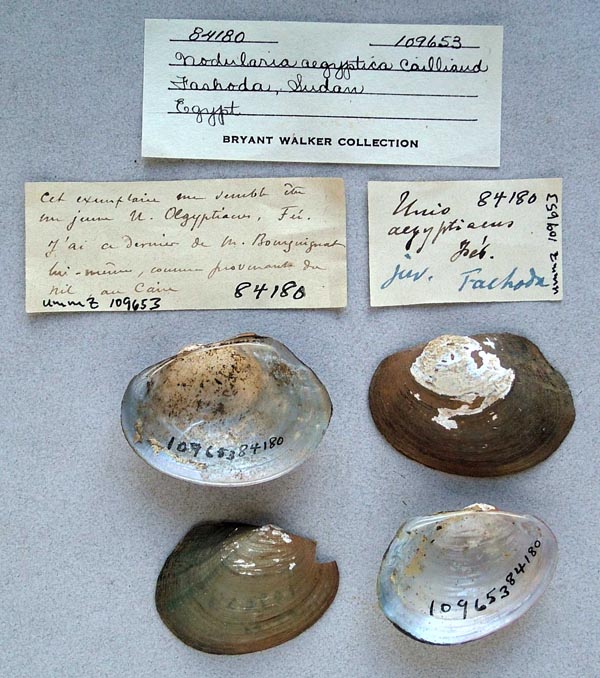 84180 109653
Nodularia aegyptica Cailliaud
Fashoda, Sudan
Egypt
BRYANT WALKER COLLECTION
Cet exemplaire me semble être
un jeune U. Ægyptiacus, Fér.
J'ai ce dernier de M. Bourguignat
lui-même, comme provenant du
nil au Caire
ummZ 109653 84180
Unio 84180
aegyptiacus
Fér.
juv. Fachoda
ummz 109653
109653 84180
109653 84180